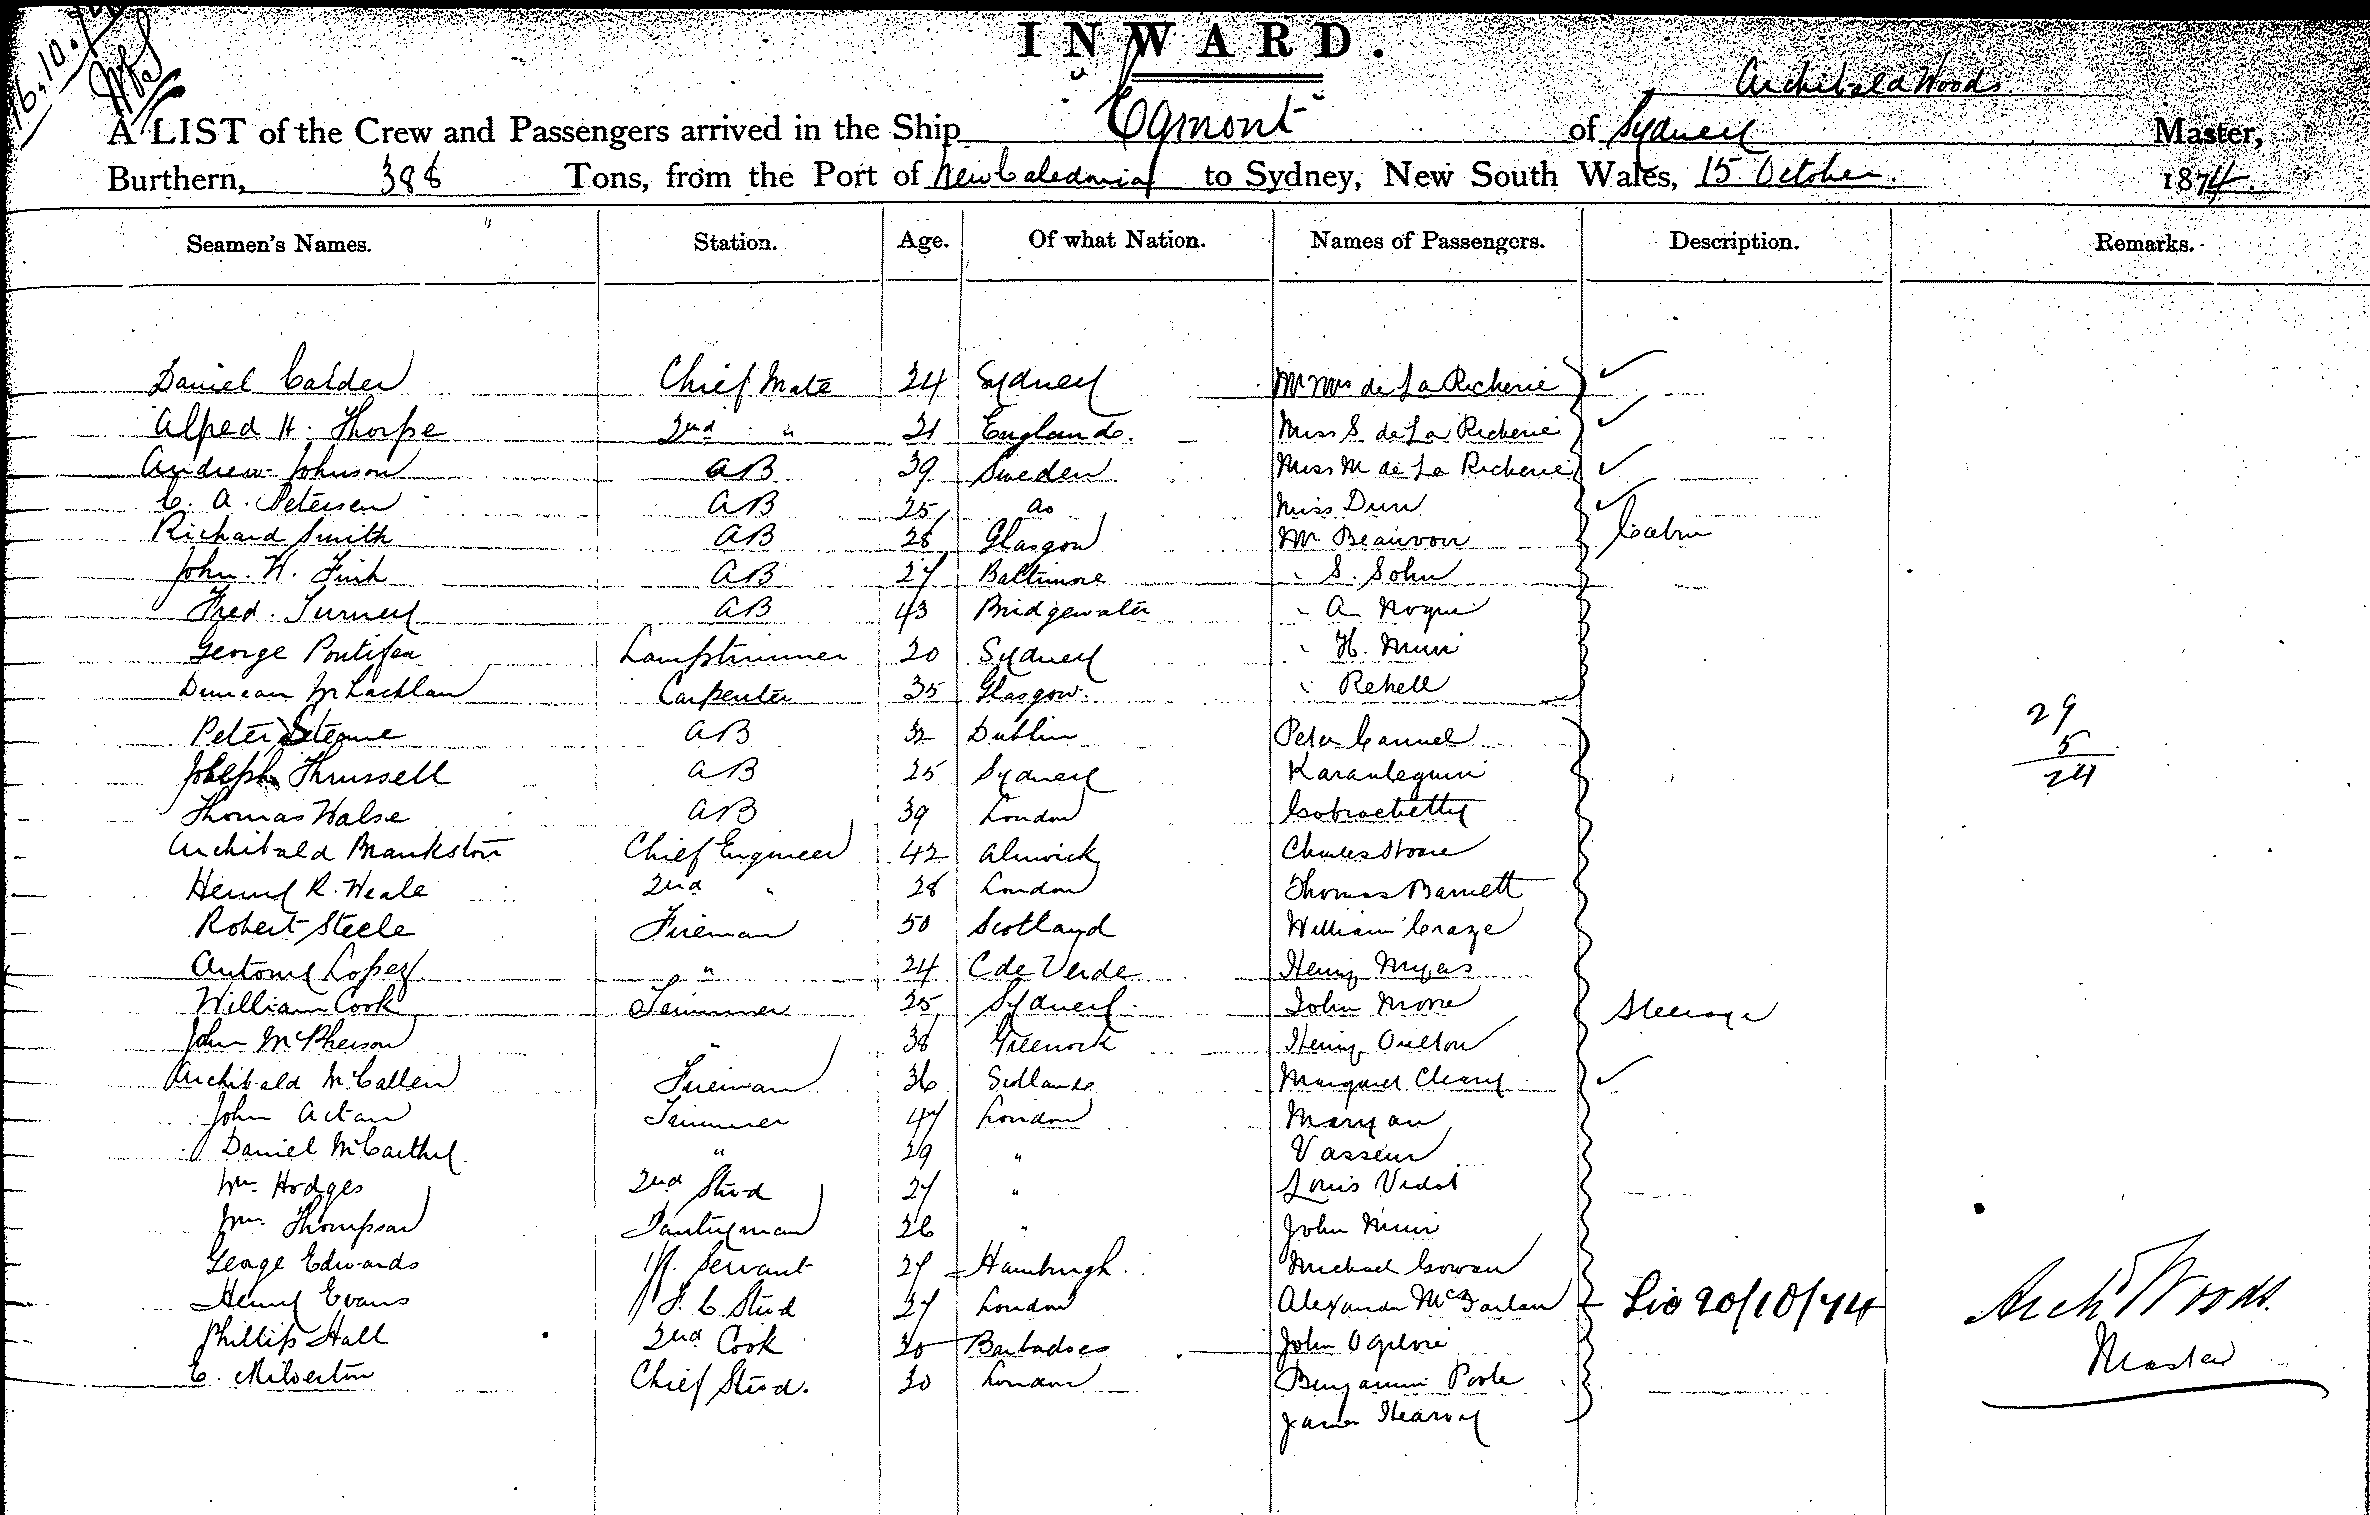 16.10.74
INWARD.
Archibald Woods
A LIST of the Crew and Passengers arrived in the Ship "Egmont" of Sydney Master,
Burthern, 388 Tons, from the Port of New Caledonia to Sydney, New South Wales, 15 October 1874.
Seamen's Names. Station. Age. Of what Nation. Names of Passengers. Description. Remarks.
Daniel Calder Chief Mate 24 Sydney Mr Mrs de La Richerie ✓
Alfred H. Thorpe 2nd " 21 England. Miss S de La Richerie ✓
Andrew Johnson AB 39 Sweden Miss M de La Richerie ✓
C. A. Petersen AB 25 do Miss Dun ✓
Richard Smith AB 28 Glasgow Mr Beauvoir Cabin
John. W. Fink AB 27 Baltimore " S. Sohn
Fred. Turney AB 43 Bridgewater " A
George Pontifex Lamptrimmer 20 Sydney " H. Muir
Duncan McLachlan Carpenter 35 Glasgow. " Rehell
Peter Stearne AB 32 Dublin Peter Cannel 29
Joseph Thrussell AB 25 Sydney 5
Thomas Halse AB 39 London 24
Archibald Brankston Chief Engineer 42 Alnwick Charles
Henry R. Weale 2nd " 28 London Thomas Barnett
Robert Steele Fireman 50 Scotland William Craze
Antony Lopez " 24 C de Verde Henry Myas
William Cook Trimmer 25 Sydney John More Steerage
John McPherson " 38 Greenock Henry Oulton
Archibald McCallen Fireman 36 Scotland Margaret Cleary ✓
John Actan Trimmer 47 London Maryan
Daniel McCarthy " 29 " Vasseur
Wm. Hodges 2nd Stwd 27 " Louis Vidot
Wm. Thompson Pantryman 26 " John Muir
George Edwards Servant 27 Hamburgh. Michael Cowan
Henry Evans F. C. Stwd 27 London Alexander McFarlan Lio 20/10/74 Archd Woods.
Phillip Hall 2nd Cook 30 Barbadoes John Ogilvie Master
E. Milverton Chief Stwd. 30 London Benjamin Poole
James Hearvy